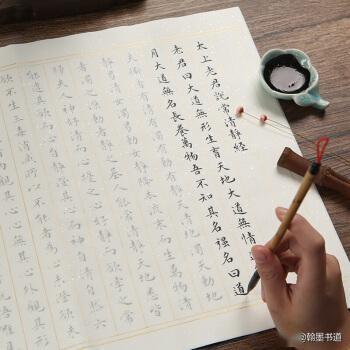 太上老君說常清靜經
老君曰大道無形生育天地大道無情
月大道無名長養萬物吾不知其名強名曰道
夫道者有清有濁有動有靜天清地濁天動地
靜男清女濁男動女靜降本流末而生萬物清
者濁之源動者靜之基人能常清靜天地悉皆
歸夫人神好清而心擾之人心好靜而慾牽之常
能遣其慾而心自靜澄其心而神自清自然六
慾不生三毒消滅所以不能者為心未澄慾未
觀其心心無其心外觀其形
@翰墨书道